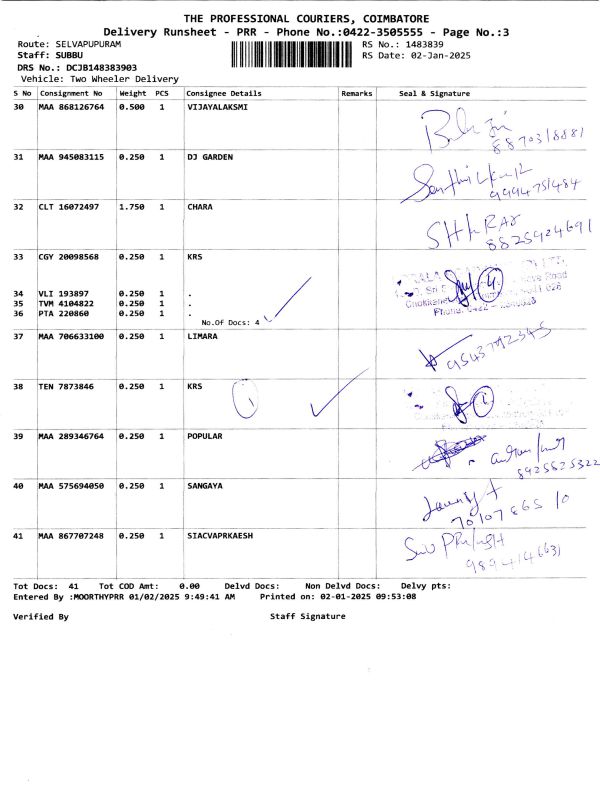 THE PROFESSIONAL COURIERS, COIMBATORE
Delivery Runsheet - PRR - Phone No.:0422-3505555 - Page No.:3
Route: SELVAPUPURAM
RS No.: 1483839
Staff: SUBBU
RS Date: 02-Jan-2025
DRS No.: DCJB148383903
Vehicle: Two Wheeler Delivery
S No Consignment No Weight PCS Consignee Details Remarks Seal & Signature
30 MAA 868126764 0.500 1 VIJAYALAKSMI
8870318881
31 MAA 945083115 0.250 1 DJ GARDEN
9994751484
32 CLT 16072497 1.750 1 CHARA
8825924691
33 CGY 20098568 0.250 1 KRS
34 VLI 193897 0.250 1 .
35 TVM 4104822 0.250 1 .
36 PTA 220860 0.250 1 .
No.Of Docs: 4
37 MAA 706633100 0.250 1 LIMARA
9543792345
38 TEN 7873846 0.250 1 KRS
39 MAA 289346764 0.250 1 POPULAR
8925525322
40 MAA 575694050 0.250 1 SANGAYA
41 MAA 867707248 0.250 1 SIACVAPRKAESH
Tot Docs: 41 Tot COD Amt: 0.00 Delvd Docs: Non Delvd Docs: Delvy pts:
Entered By :MOORTHYPRR 01/02/2025 9:49:41 AM Printed on: 02-01-2025 09:53:08
Verified By Staff Signature